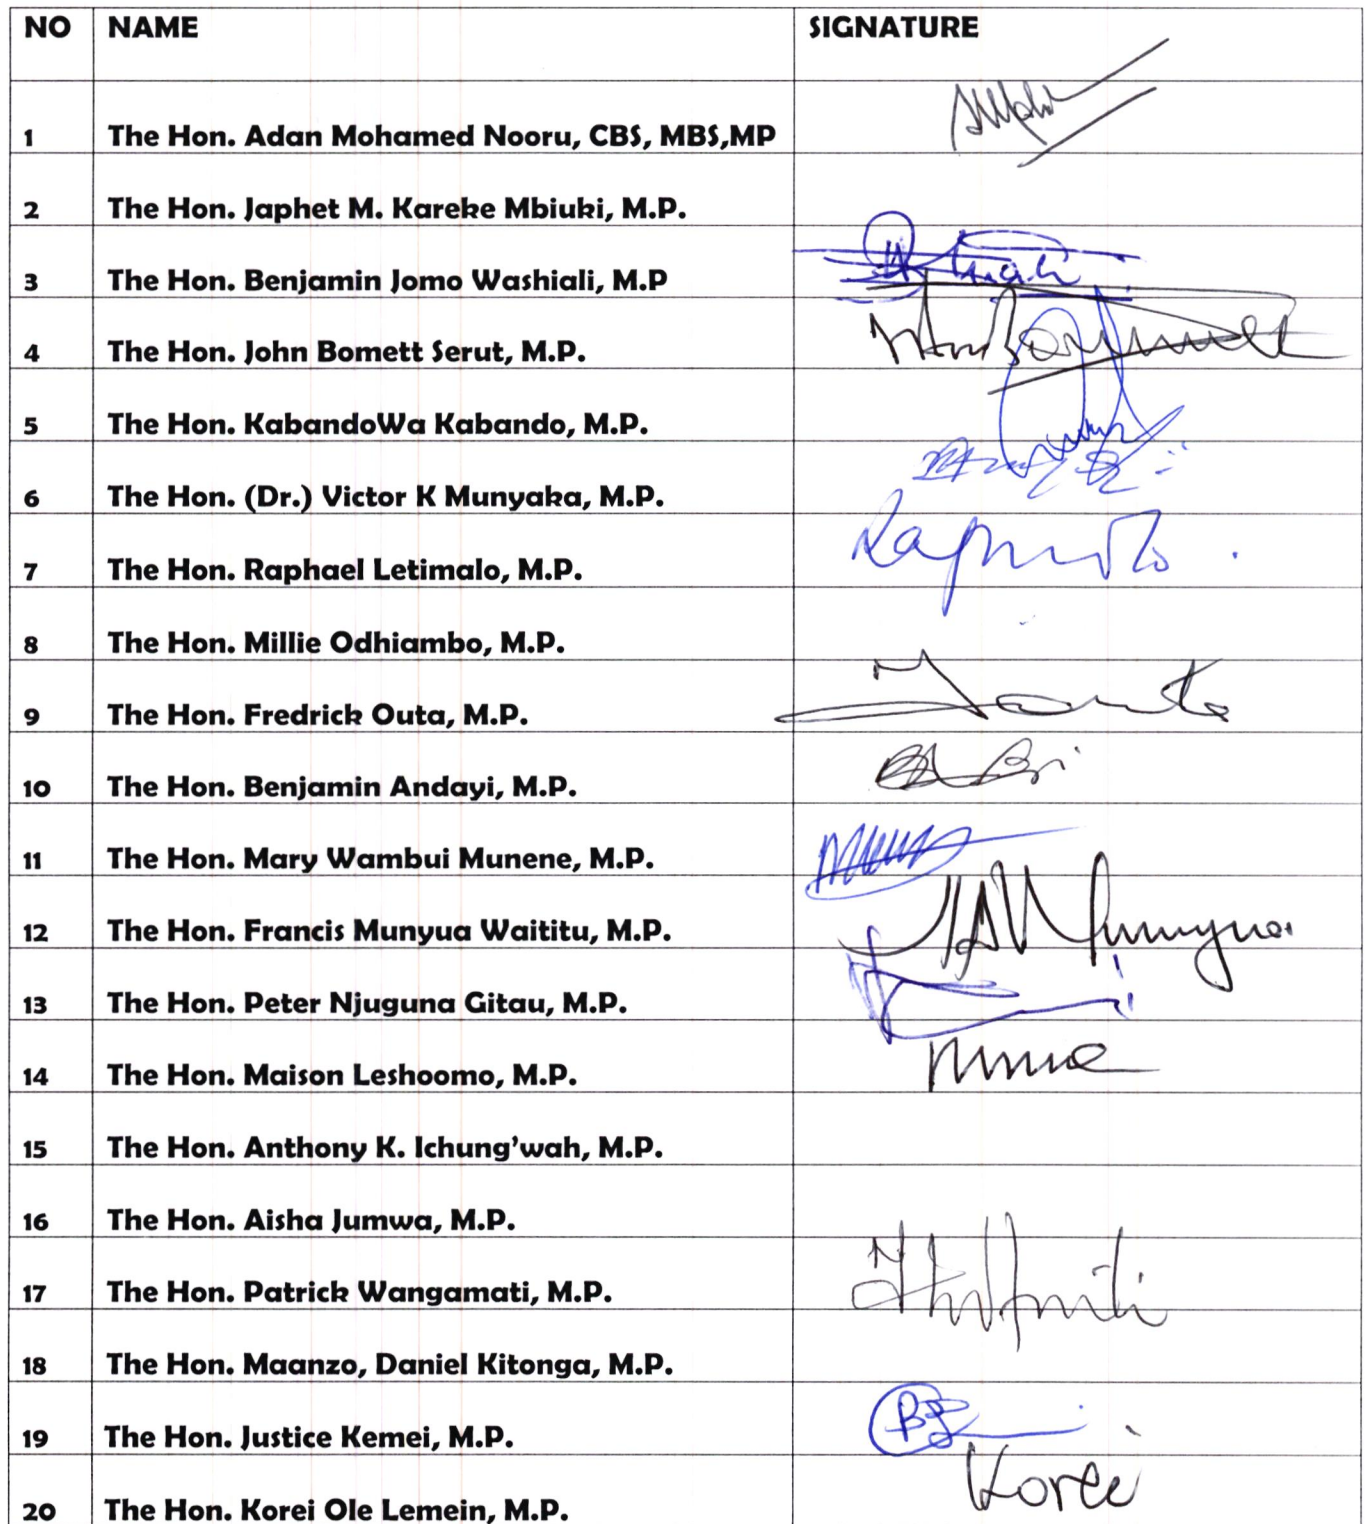 NO NAME SIGNATURE
1 The Hon. Adan Mohamed Nooru, CBS, MBS,MP
2 The Hon. Japhet M. Kareke Mbiuki, M.P.
3 The Hon. Benjamin Jomo Washiali, M.P
4 The Hon. John Bomett Serut, M.P.
5 The Hon. KabandoWa Kabando, M.P.
6 The Hon. (Dr.) Victor K Munyaka, M.P.
7 The Hon. Raphael Letimalo, M.P.
8 The Hon. Millie Odhiambo, M.P.
9 The Hon. Fredrick Outa, M.P.
10 The Hon. Benjamin Andayi, M.P.
11 The Hon. Mary Wambui Munene, M.P.
12 The Hon. Francis Munyua Waititu, M.P. Munyua
13 The Hon. Peter Njuguna Gitau, M.P.
14 The Hon. Maison Leshoomo, M.P.
15 The Hon. Anthony K. Ichung'wah, M.P.
16 The Hon. Aisha Jumwa, M.P.
17 The Hon. Patrick Wangamati, M.P.
18 The Hon. Maanzo, Daniel Kitonga, M.P.
19 The Hon. Justice Kemei, M.P.
20 The Hon. Korei Ole Lemein, M.P. Korei